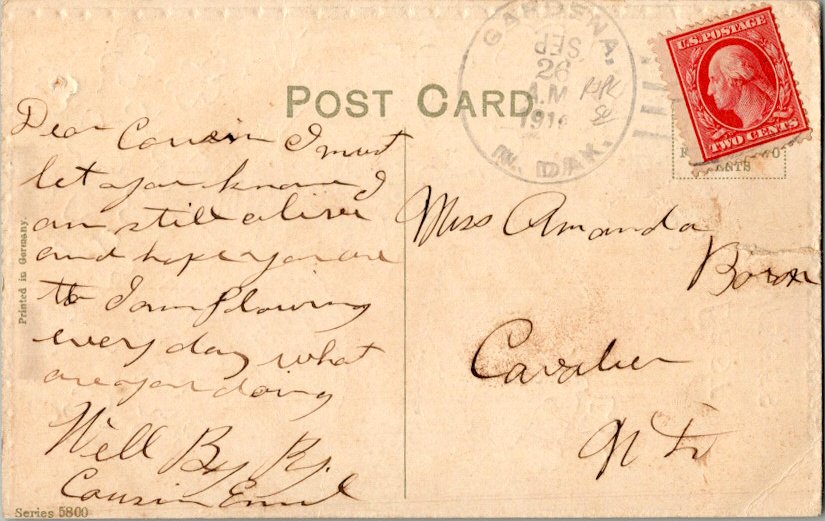 POST CARD
GARDENA,
SEP
26
A.M
191
N. DAK.
U.S. POSTAGE
TWO CENTS
Dear Cousin I must
let you know I
am still alive
and hope you are
to I am Plowing
every day what
are you doing
Well By By.
Cousin Emil
Miss Amanda
Cavalier
N
Printed in Germany.
Series 5800